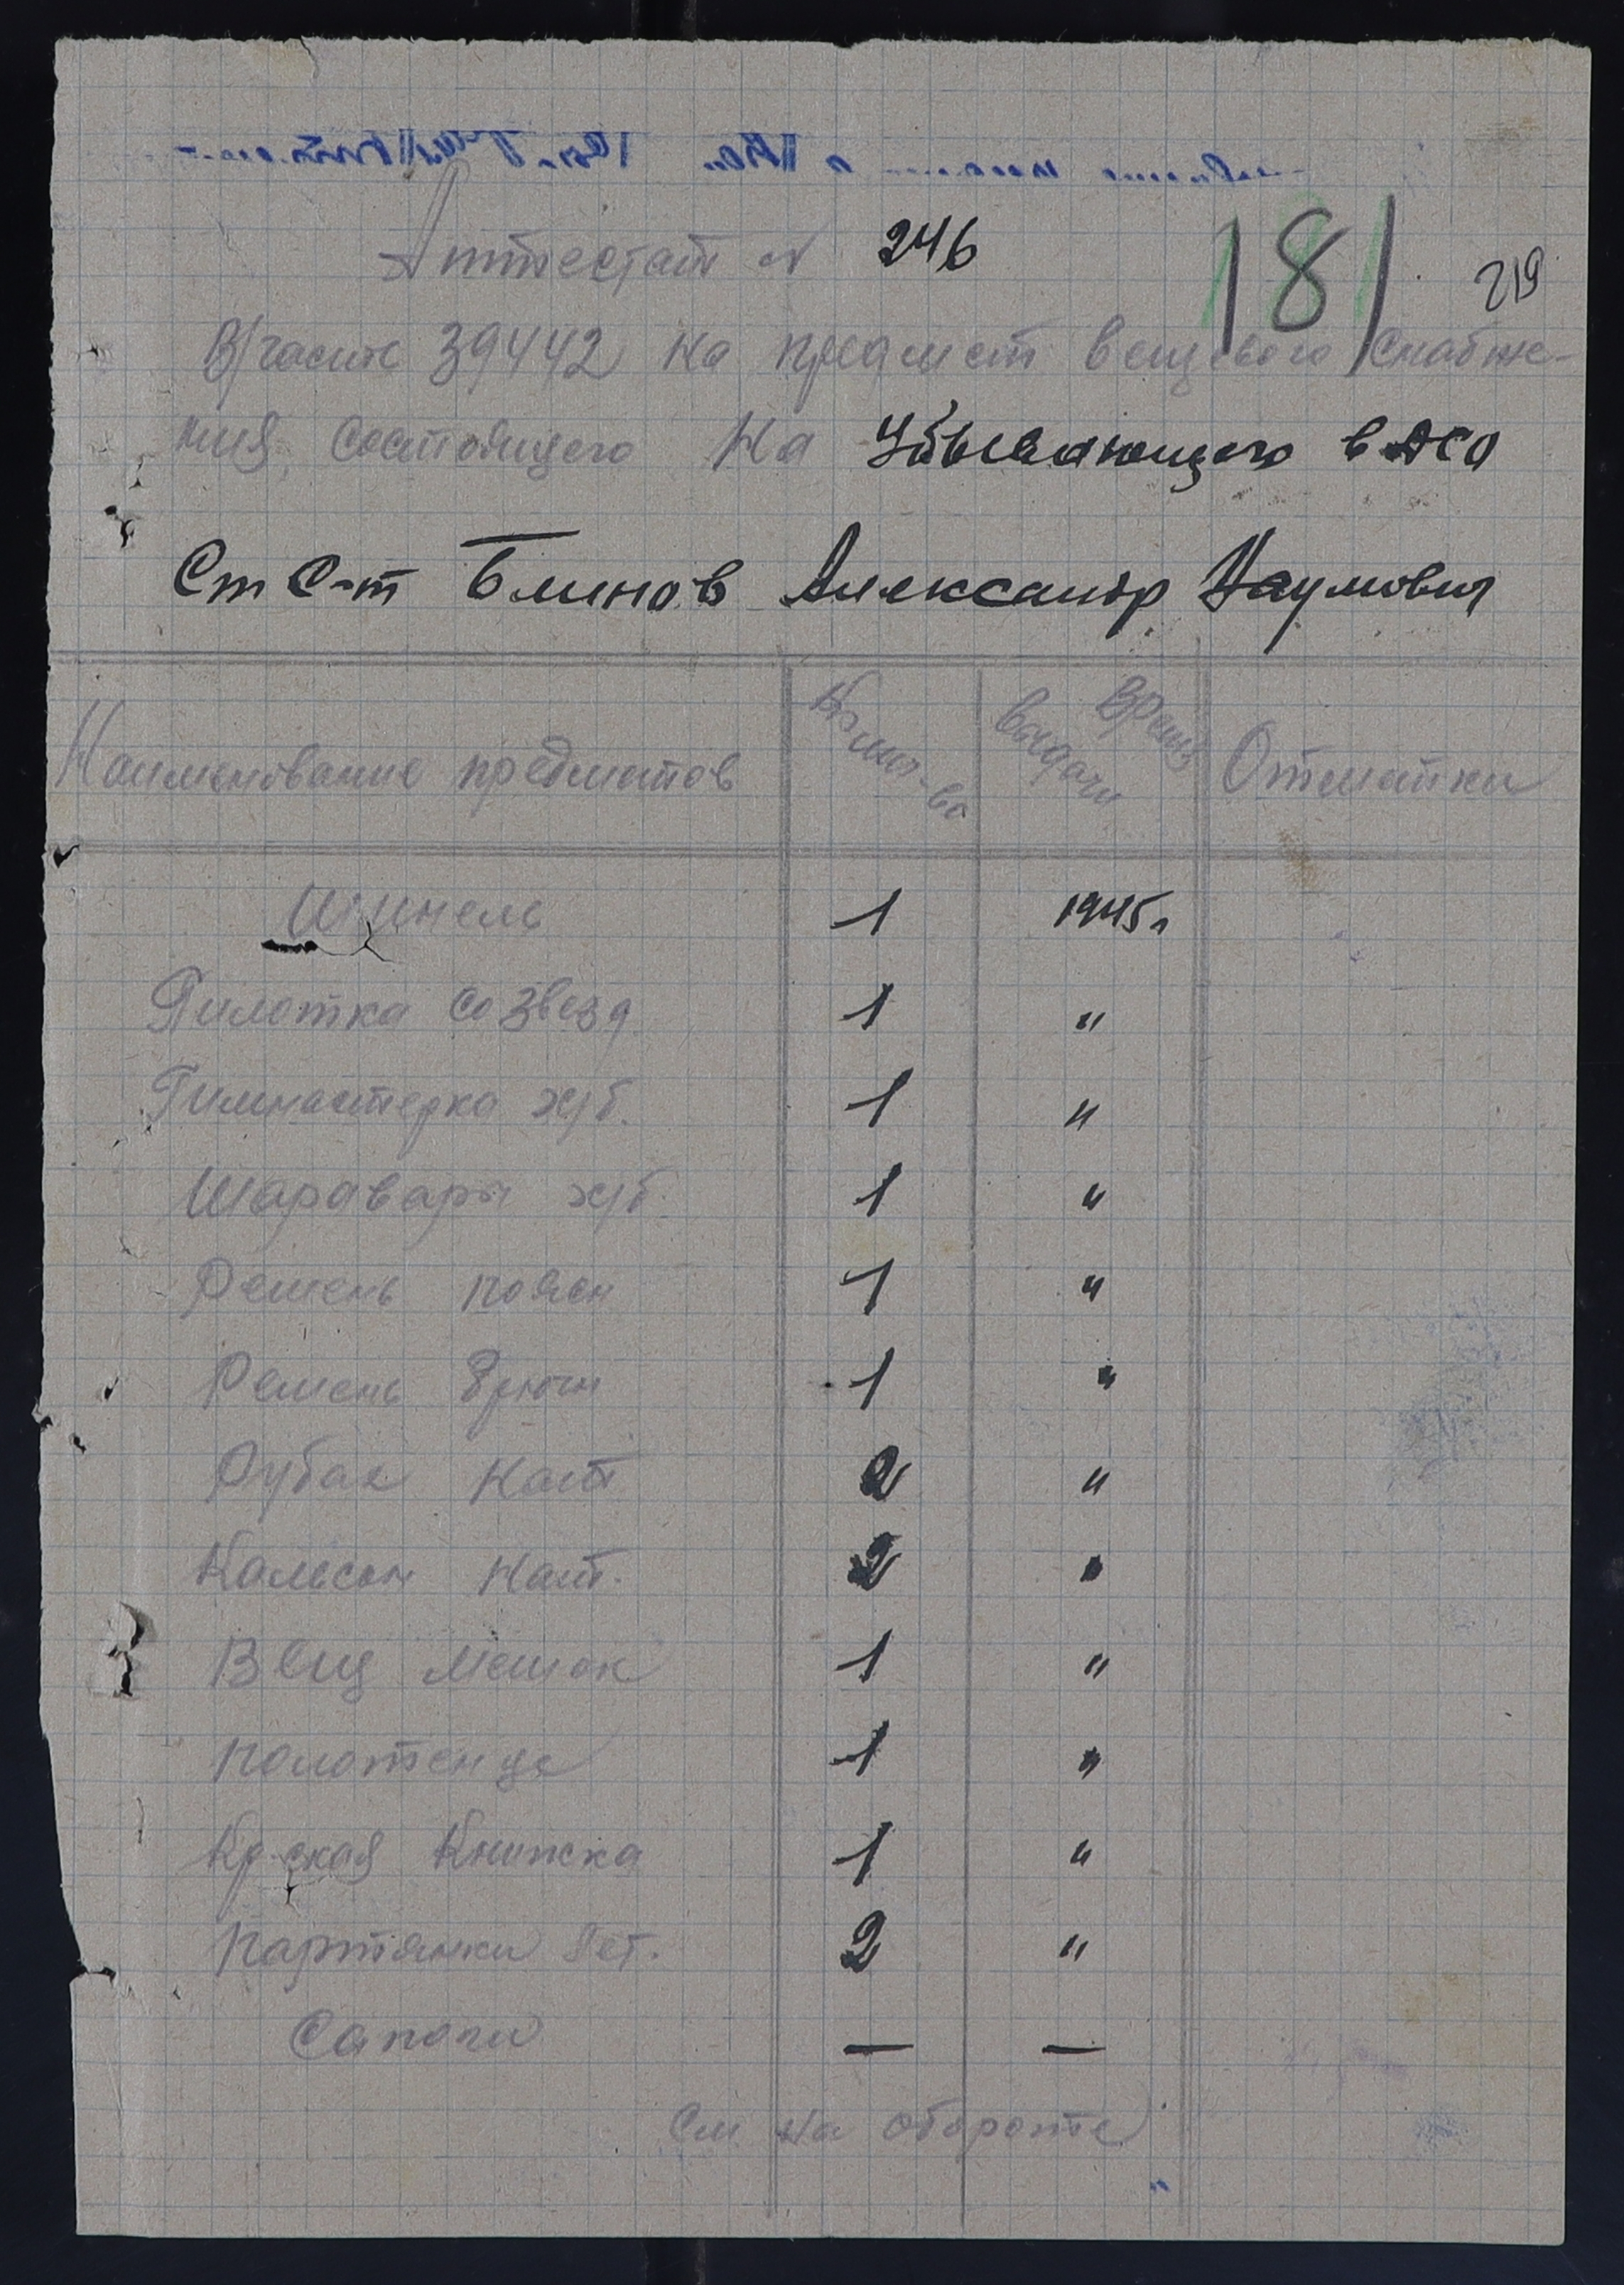 Аттестат № 246
181
219
В/части 39442 на предмет вещевого снабже-
ния состоящего на убывающего в АСО
Ст С-т Блинов Александр Наумович
Наименование предметов Колич-во Время выдачи Отметки
Шинель 1 1945г
Пилотка со звезд 1 "
Гимнастерка х/б. 1 "
Шаравары х/б. 1 "
Ремень поясн 1 "
Ремень брючн 1 "
Рубах нат 2 "
Кальсон нат. 2 "
Вещ мешок 1 "
Полотенце 1 "
Кр-ская Книжка 1 "
Партянки лет. 2 "
Сапоги — —
См на обороте